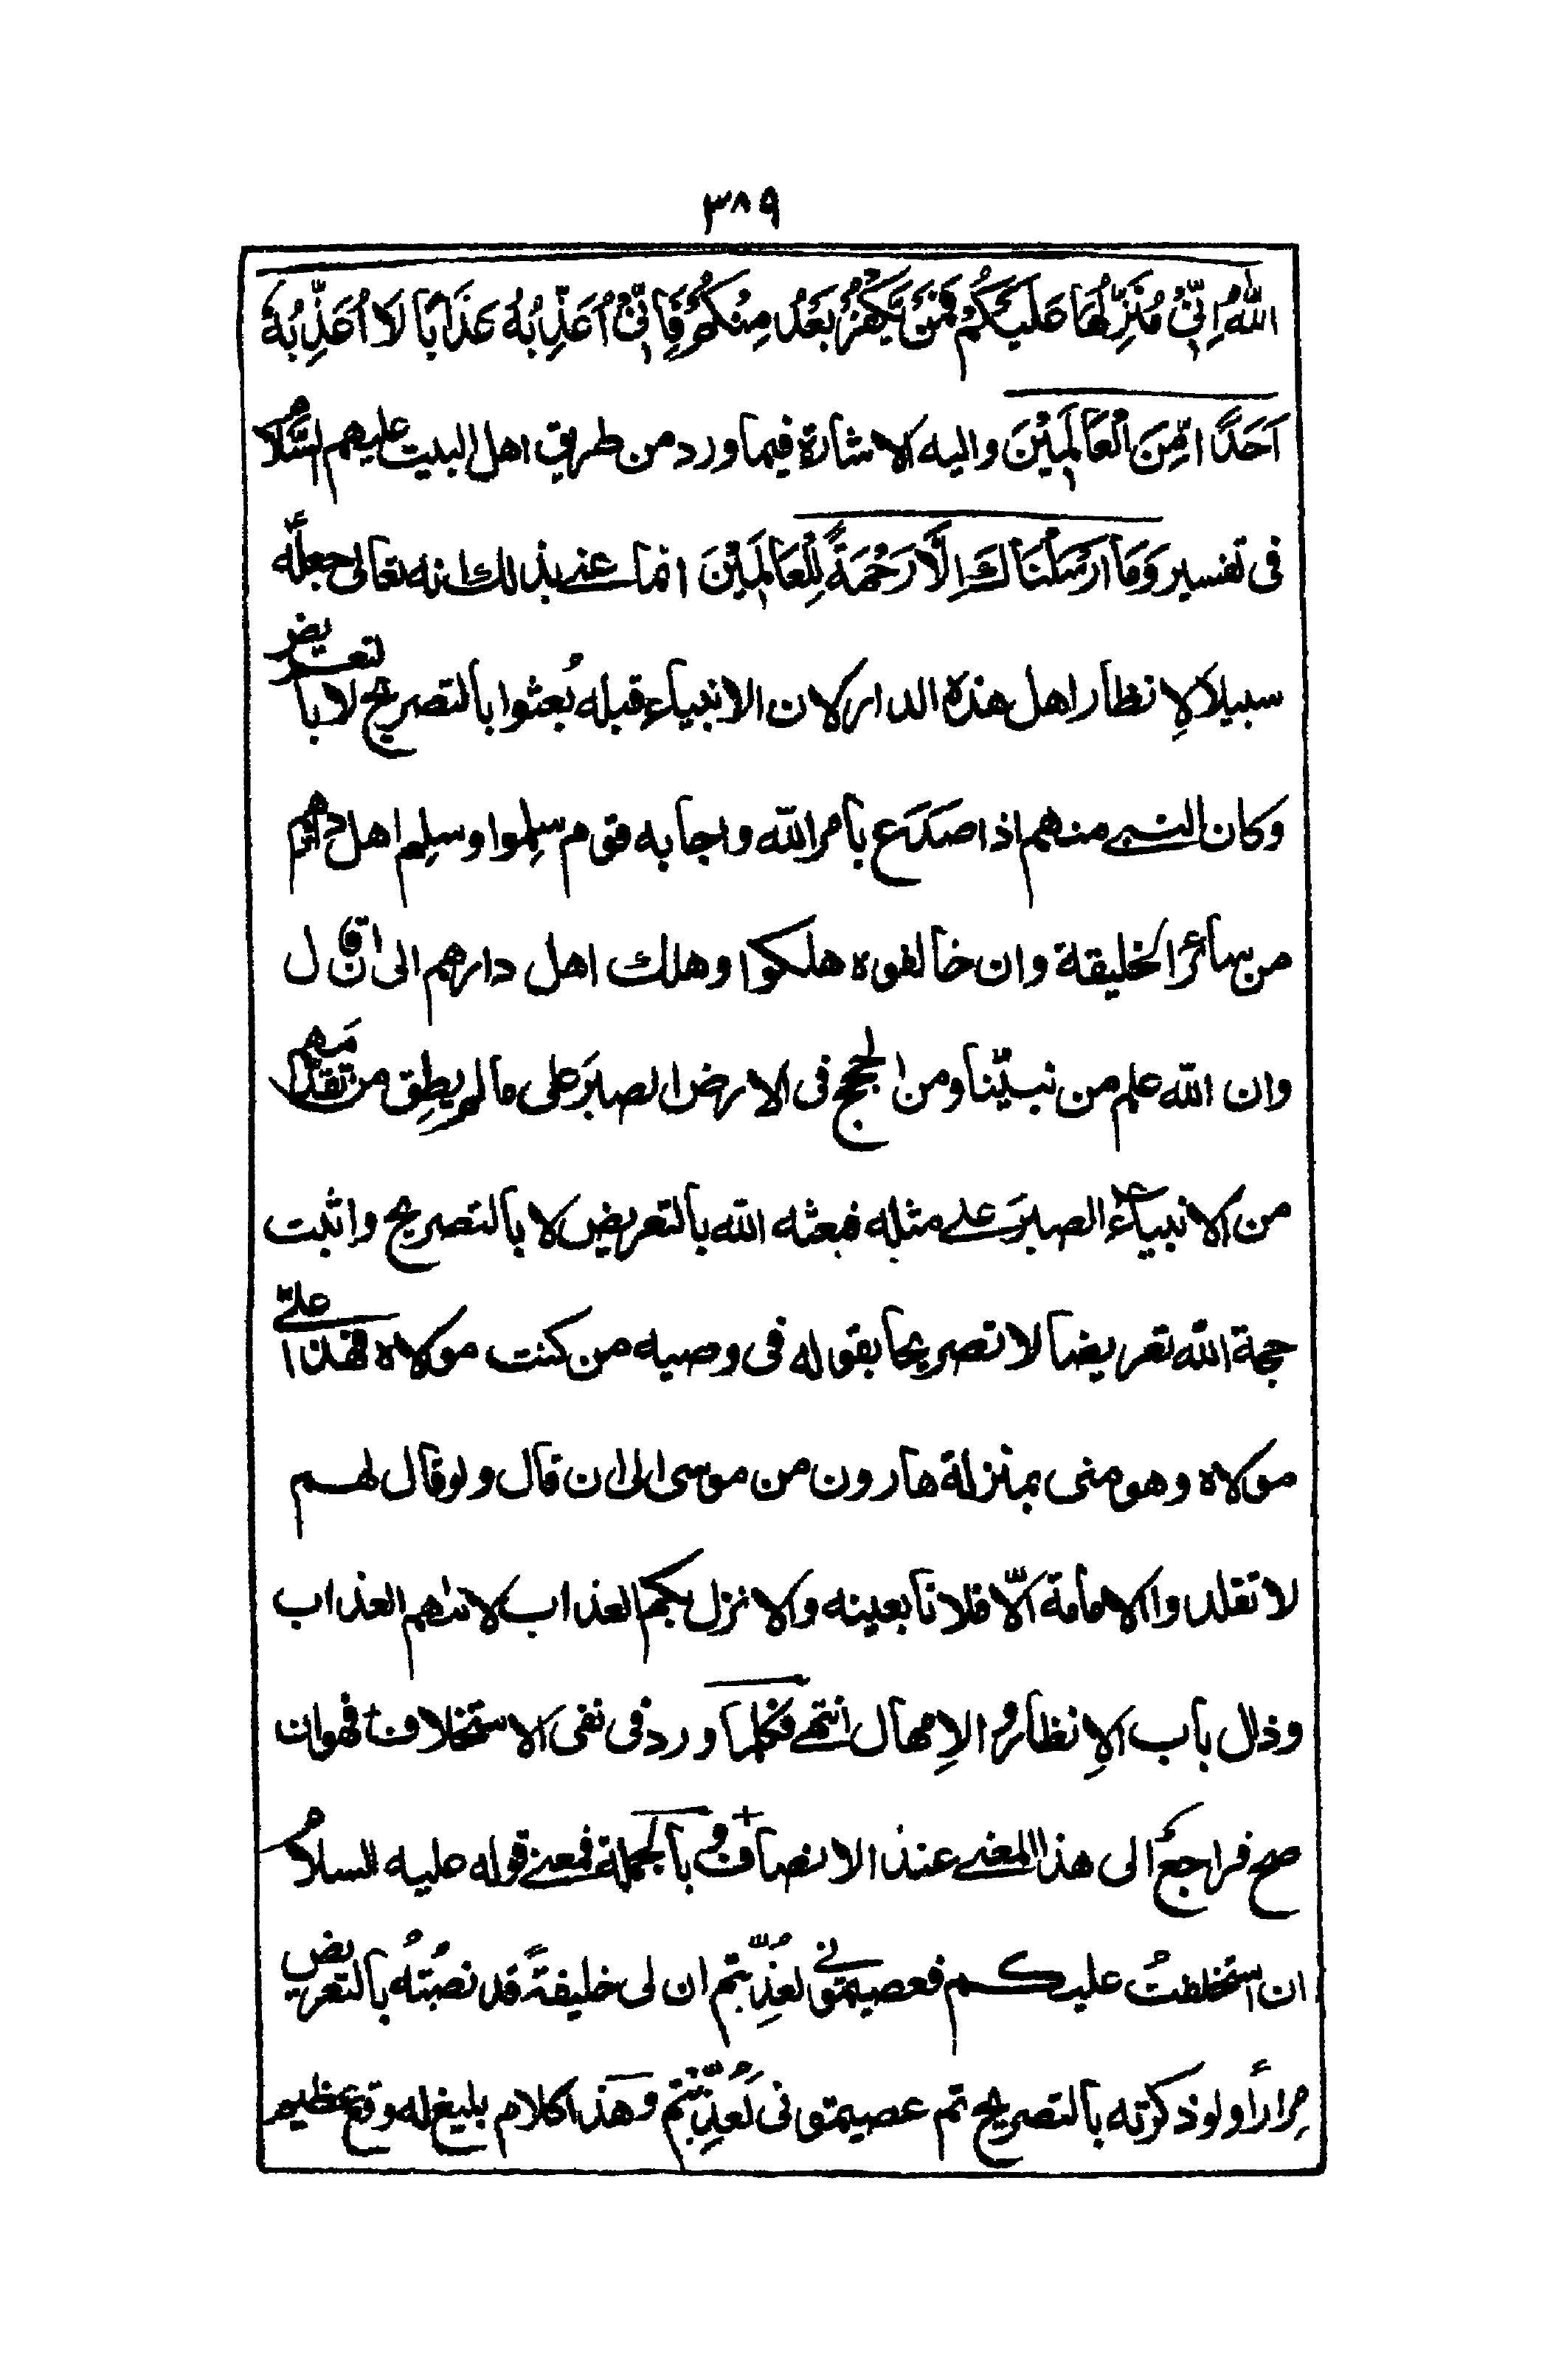 ٣٨٩
اللّٰهُ اِنِّيْ مُنَزِّلُهَا عَلَيْكُمْ فَمَنْ يَّكْفُرْ بَعْدُ مِنْكُمْ فَاِنِّيْ اُعَذِّبُهُ عَذَابًا لَا اُعَذِّبُهُ
اَحَدًا مِّنَ الْعَالَمِيْنَ واليه الاشارة فيما ورد من طريق اهل البيت عليهم السَّلامُ
فى تفسير وَمَا اَرْسَلْنَاكَ اِلَّا رَحْمَةً لِلْعَالَمِيْنَ انما عنى بذلك انه تعالى جعله
سبيلا لِانظار اهل هذه الدار لان الانبياء قبله بُعثوا بالتصريح لا بالتعريض
وكان النبي منهم اذا صَدَع بامر الله واجابه قوم سلِموا وسلِم اهل دارهم
من سائر الخليقة وان خالفوه هلكوا وهلك اهل دارهم الى ان قال
وان الله علم من نبيّنا ومن الحجج فى الارض الصبرَ على ما لم يطِق من تقدّمَهم
من الانبياء الصبرَ على مثله فبعثه الله بالتعريض لا بالتصريح واثبت
حجة الله تعريضا لا تصريحا بقوله فى وصيه من كنت مولاه فهذا علىّ
مولاه وهو منى بمنزلة هارون من موسى الى ان قال ولو قال لهم
لا تقلدوا الامامة الّا فلانا بعينه والا نزل بكم العذاب لاتاهم العذاب
وذال باب الاِنظار والاِمهال انتهى فكلما ورد فى نفى الاستخلاف فهو ان
صح فراجعٌ الى هذا المعنى عند الانصاف وبالجملة فمعنى قوله عليه السلامُ
ان استخلفتُ عليكم فعصيتمونى لعُذِّبتم ان لى خليفةً قد نصبتُهُ بالتعريض
مِراراً ولو ذكرته بالتصريح ثم عصيتمونى لَعُذِّبْتُم وهذا كلام بليغ له وقع عظيم